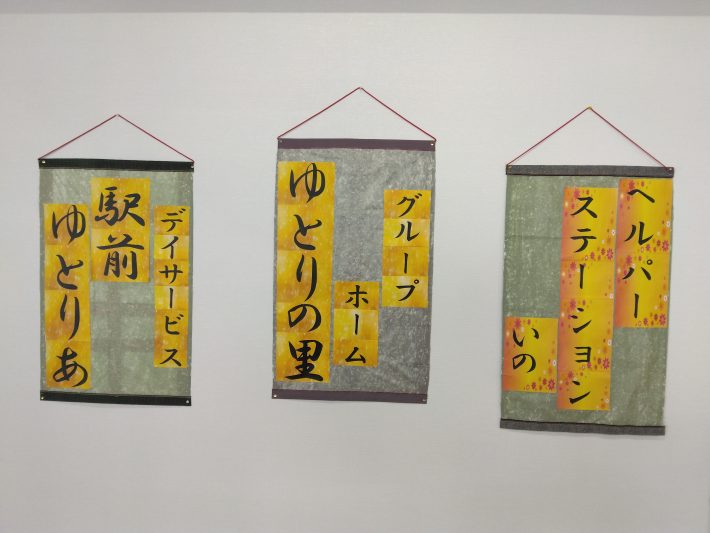 デイサービス
駅前
ゆとりあ
グループ
ホーム
ゆとりの里
ヘルパー
ステーション
いの